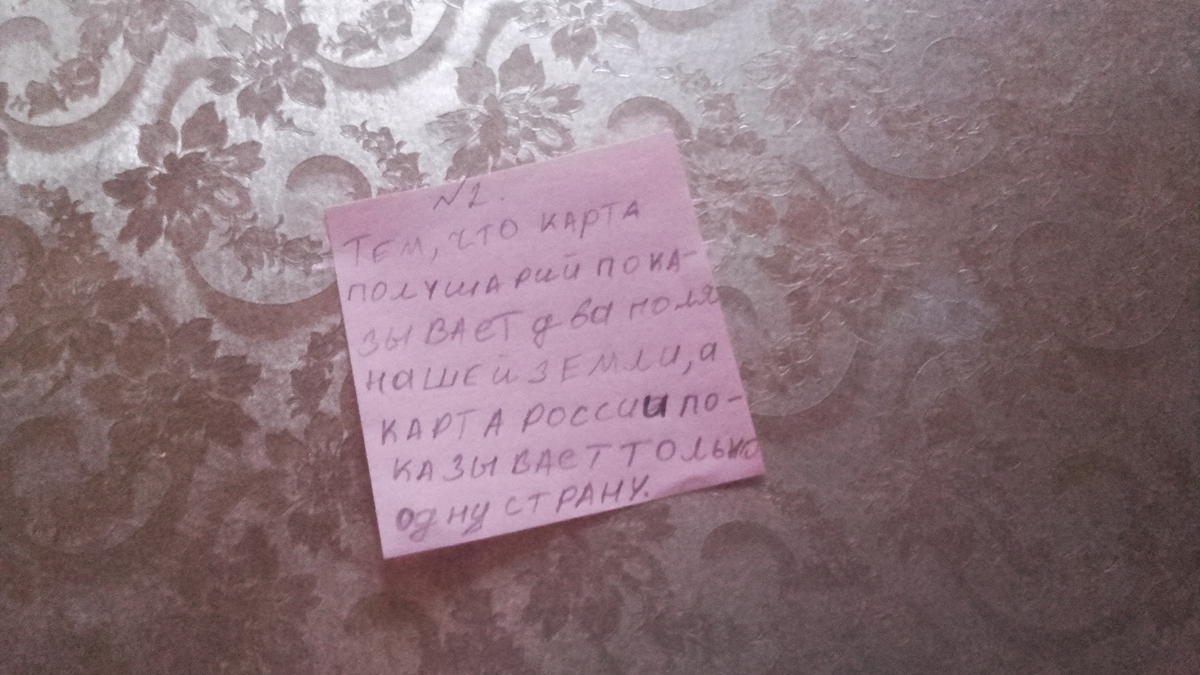 №2.
ТЕМ, ЧТО КАРТА
ПОЛУШАРИЙ ПОКА-
ЗЫВАЕТ два поля
НАШЕЙ ЗЕМЛИ, а
КАРТА РОССИИ ПО-
КАЗЫВАЕТ ТОЛЬКО
ОДНУ СТРАНУ.